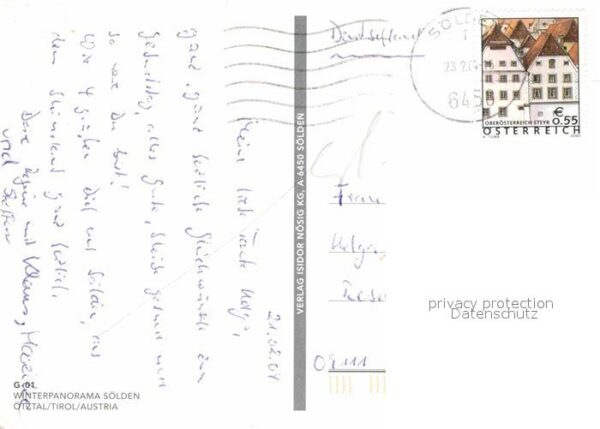 21.02.04
Meine liebe Tante Helga,
ganz, ganz herzliche Glückwünsche zum
Geburtstag, alles Gute, bleibe gesund und
so wie Du bist!
Wir 4 grüßen Dich aus Sölden, aus
dem Skiurlaub ganz herzlich.
Deine Regine mit Klaus,
und Steffen
G-01
WINTERPANORAMA SÖLDEN
ÖTZTAL/TIROL/AUSTRIA
VERLAG ISIDOR NÖSIG KG, A-6450 SÖLDEN
Deutschland
SÖLDEN
23.2.04
6450
OBERÖSTERREICH STEYR
€ 0.55
ÖSTERREICH
Frau
Helga
09111
privacy protection
Datenschutz